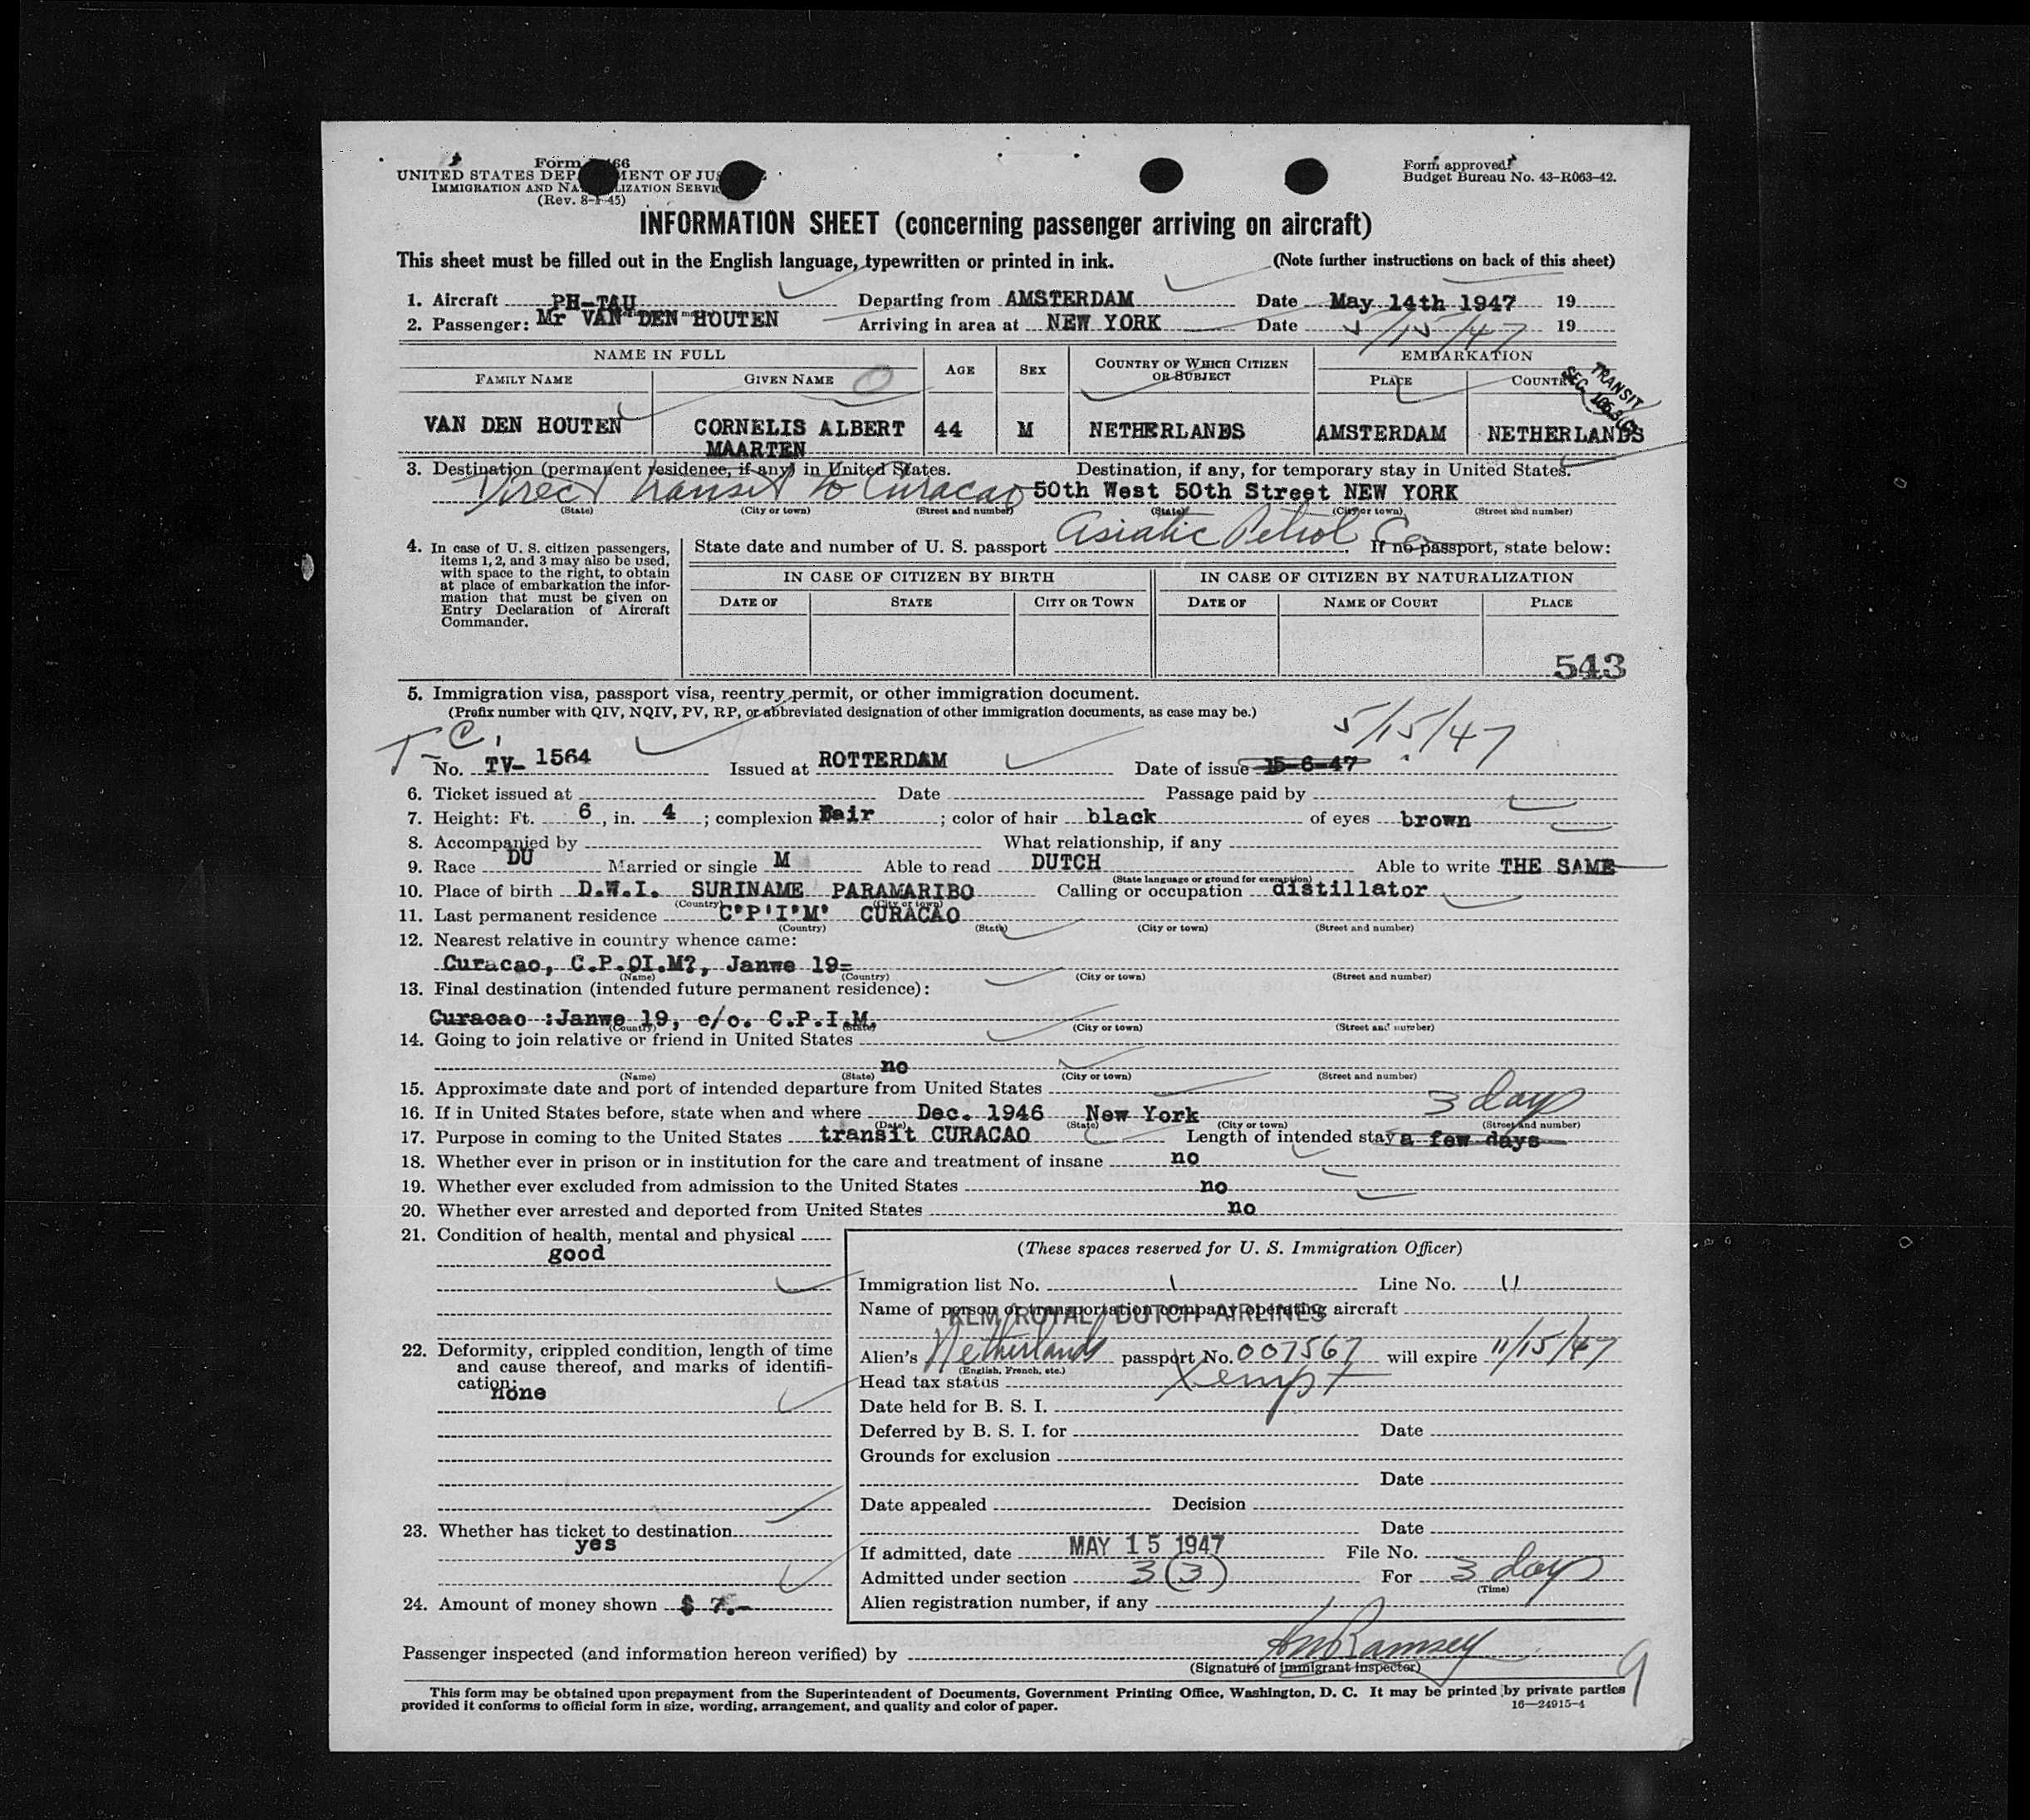 Form 66
UNITED STATES DEP MENT OF JUS
IMMIGRATION AND NA LIZATION SERVIC
(Rev. 8-1-45)
Form approved
Budget Bureau No. 43-R063-42.
INFORMATION SHEET (concerning passenger arriving on aircraft)
This sheet must be filled out in the English language, typewritten or printed in ink. (Note further instructions on back of this sheet)
1. Aircraft PH-TAU Departing from AMSTERDAM Date May 14th 1947 19
2. Passenger: Mr VAN DEN HOUTEN Arriving in area at NEW YORK Date 5/15/47 19
NAME IN FULL AGE SEX COUNTRY OF WHICH CITIZEN OR SUBJECT EMBARKATION
FAMILY NAME GIVEN NAME PLACE COUNTRY
TRANSIT
SEC
VAN DEN HOUTEN CORNELIS ALBERT 44 M NETHERLANDS AMSTERDAM NETHERLANDS
MAARTEN
3. Destination (permanent residence, if any) in United States. Destination, if any, for temporary stay in United States.
Direct transit to Curacao 50th West 50th Street NEW YORK
(State) (City or town) (Street and number) (State) (City or town) (Street and number)
Asiatic Petrol Co
4. In case of U. S. citizen passengers, items 1, 2, and 3 may also be used, with space to the right, to obtain at place of embarkation the information that must be given on Entry Declaration of Aircraft Commander.
State date and number of U. S. passport . If no passport, state below:
IN CASE OF CITIZEN BY BIRTH IN CASE OF CITIZEN BY NATURALIZATION
DATE OF STATE CITY OR TOWN DATE OF NAME OF COURT PLACE
543
5. Immigration visa, passport visa, reentry permit, or other immigration document.
(Prefix number with QIV, NQIV, PV, RP, or abbreviated designation of other immigration documents, as case may be.)
T-C, 5/15/47
No. TV- 1564 Issued at ROTTERDAM Date of issue 15-6-47
6. Ticket issued at Date Passage paid by
7. Height: Ft. 6, in. 4; complexion Fair; color of hair black of eyes brown
8. Accompanied by What relationship, if any
9. Race DU Married or single M Able to read DUTCH Able to write THE SAME
(State language or ground for exemption)
10. Place of birth D.W.I. SURINAME PARAMARIBO Calling or occupation distillator
(Country) (City or town)
11. Last permanent residence C'P'I'M' CURACAO
(Country) (State) (City or town) (Street and number)
12. Nearest relative in country whence came:
Curacao, C.P.OI.M?, Janwe 19=
(Name) (Country) (City or town) (Street and number)
13. Final destination (intended future permanent residence):
Curacao :Janwe 19, c/o. C.P.I.M.
(Country) (State) (City or town) (Street and number)
14. Going to join relative or friend in United States
no
(Name) (State) (City or town) (Street and number)
15. Approximate date and port of intended departure from United States
16. If in United States before, state when and where Dec. 1946 New York 3 days
(Date) (State) (City or town) (Street and number)
17. Purpose in coming to the United States transit CURACAO Length of intended stay a few days
18. Whether ever in prison or in institution for the care and treatment of insane no
19. Whether ever excluded from admission to the United States no
20. Whether ever arrested and deported from United States no
21. Condition of health, mental and physical
good
22. Deformity, crippled condition, length of time and cause thereof, and marks of identification:
none
23. Whether has ticket to destination
yes
24. Amount of money shown $ 7.-
(These spaces reserved for U. S. Immigration Officer)
Immigration list No. 1 Line No. 11
Name of person or transportation company operating aircraft
KLM ROYAL DUTCH AIRLINES
Alien's Netherlands passport No. 007567 will expire 11/15/47
(English, French, etc.)
Head tax status Xempt
Date held for B. S. I.
Deferred by B. S. I. for Date
Grounds for exclusion
Date
Date appealed Decision
Date
If admitted, date MAY 15 1947 File No.
Admitted under section 3(3) For 3 days
(Time)
Alien registration number, if any
Passenger inspected (and information hereon verified) by Ramsey
(Signature of immigrant inspector)
9
This form may be obtained upon prepayment from the Superintendent of Documents, Government Printing Office, Washington, D. C. It may be printed by private parties
provided it conforms to official form in size, wording, arrangement, and quality and color of paper. 16—24915-4